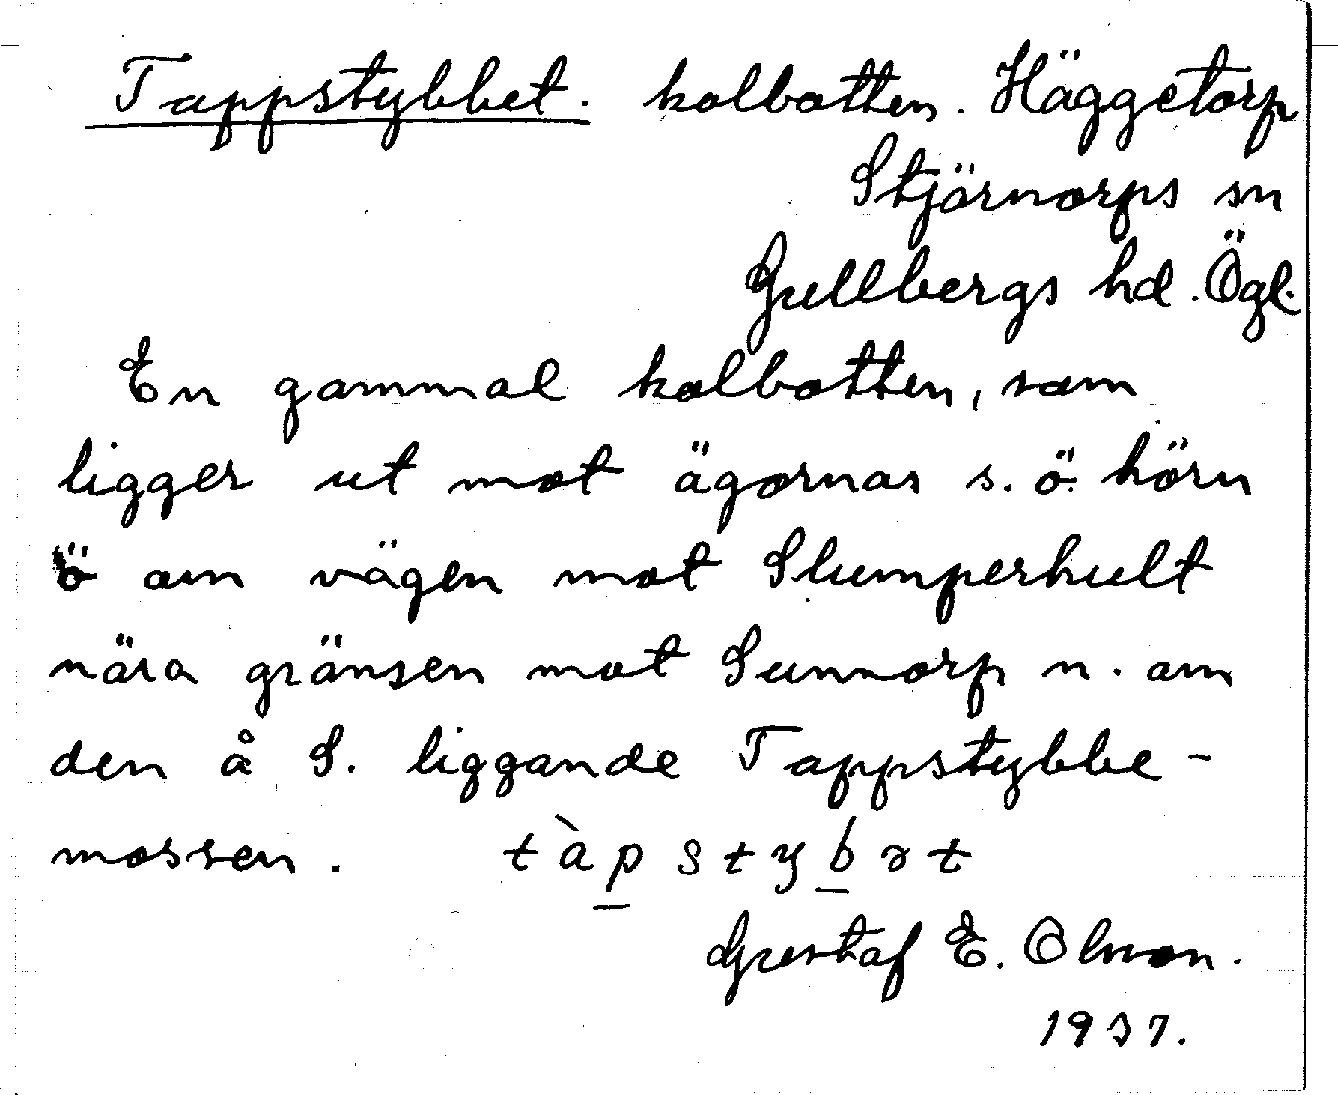 Tappstybbet. kolbotten. Häggetorp
Stjärnorps sn
Gullbergs hd. Ögl.
En gammal kolbotten, som
ligger ut mot ägornas s. ö. hörn
ö om vägen mot Slumperhult
nära gränsen mot Sunnorp n. om
den å S. liggande Tappstybbe-
mossen. tàp̲styb̲ɤt
Gustaf E. Olsson.
1937.